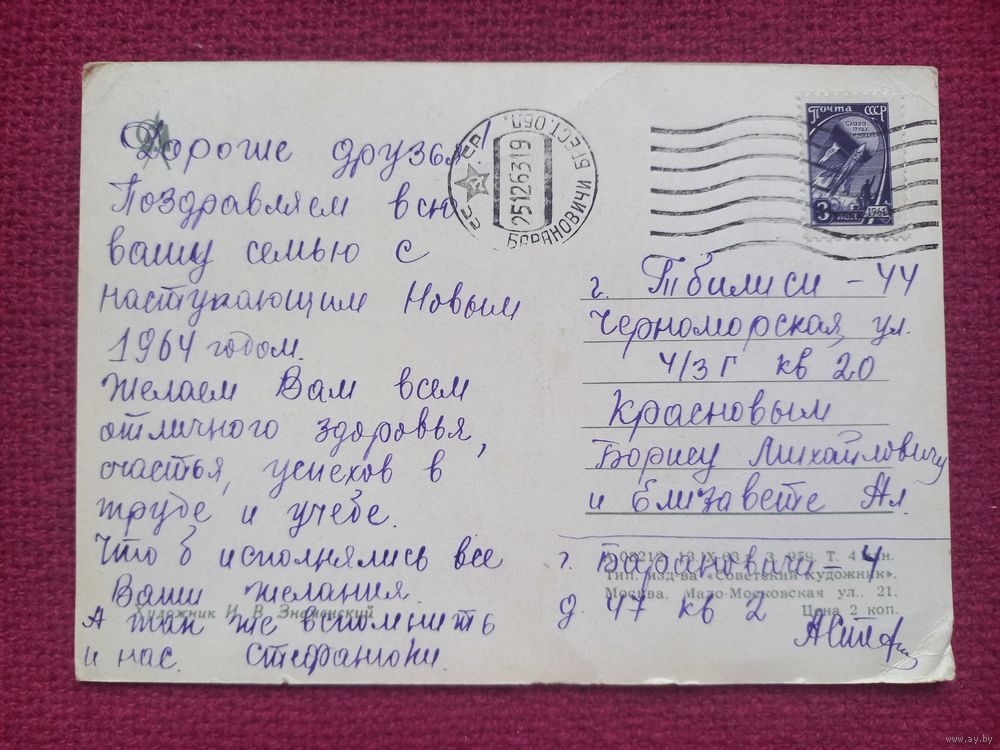 Дорогие друзья!
Поздравляем всю
вашу семью с
наступающим Новым
1964 годом.
Желаем Вам всем
отличного здоровья,
счастья, успехов в
труде и учебе.
Что б исполнялись все
Ваши желания.
А так же вспомнить
и нас. Стефанюки.
Художник И. В. Знаменский
БАРАНОВИЧИ БРЕСТ. ОБЛ.
25126319
Почта СССР
Слава труду
3 коп.
1961
г. Тбилиси - 44
Черноморская, ул.
4/3 г кв 20
Красновым
Борису Михайловичу
и Елизавете Ал.
г. Барановичи - 4
д. 47 кв 2
А 08212. 13/X-63 г. З. 959. Т. 4 млн.
Тип. изд-ва «Советский художник».
Москва, Мало-Московская ул., 21.
Цена 2 коп.
www.ay.by